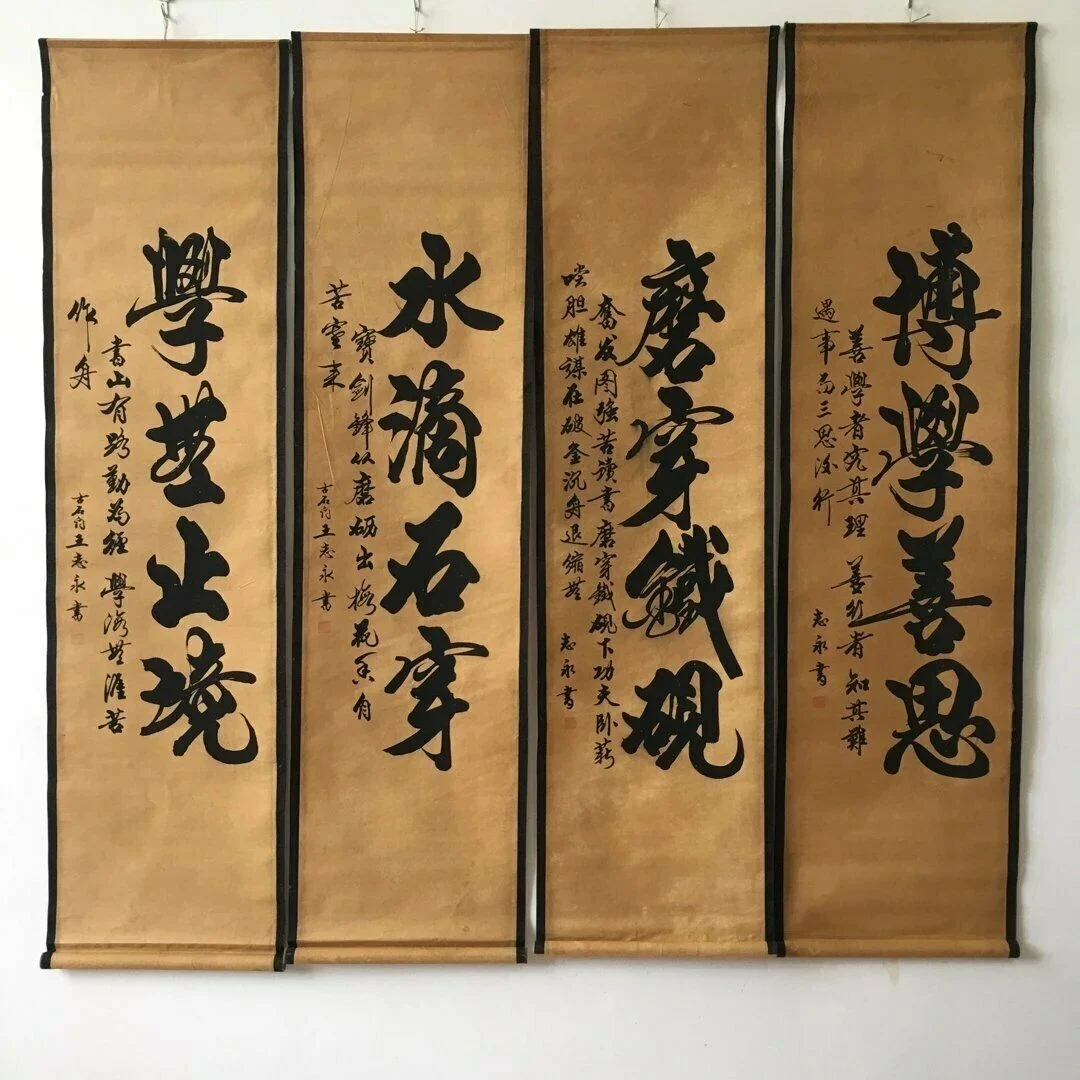 博學善思
善學者究其理 善行者知其難
遇事而三思後行
志永書
磨穿鐵硯
奮发图強苦讀書磨穿鐵硯下功夫卧薪
嚐胆雄謀在破釜沉舟退縮無
志永書
水滴石穿
寶劍鋒从磨砺出梅花香自
苦寒来
古石门王志永書
學無止境
書山有路勤為徑 學海無涯苦
作舟
古石门王志永書